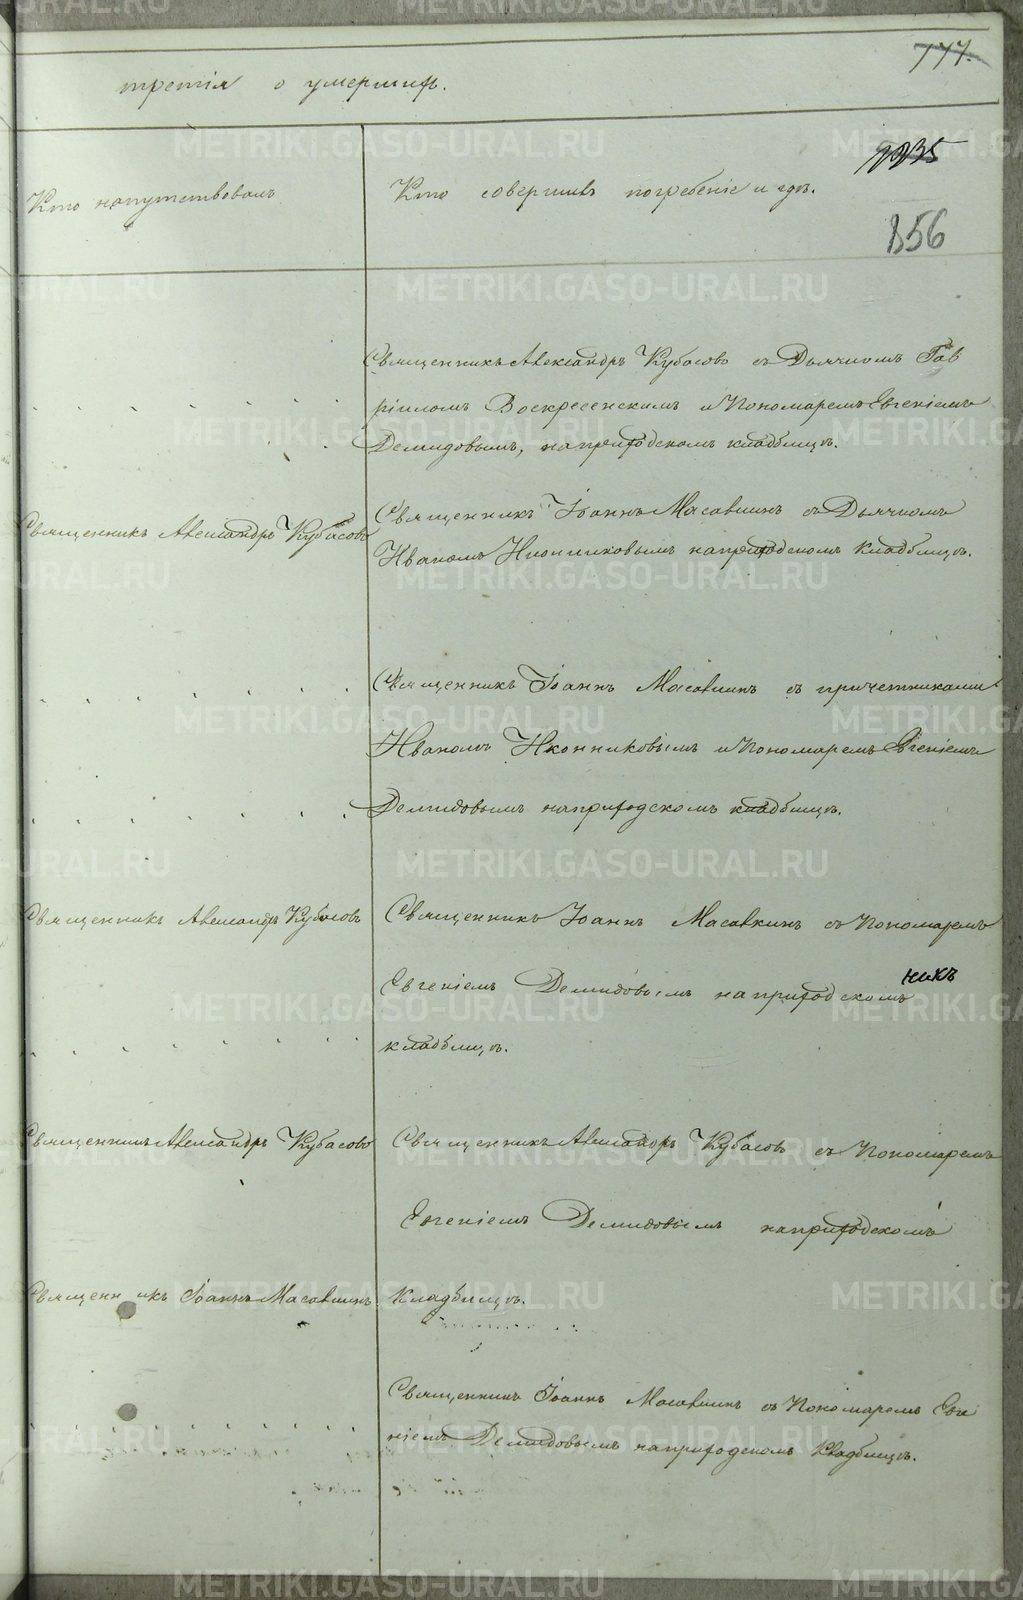 177.
третія о умершихъ.
1235
Кто напутствовалъ
Кто совершивъ погребеніе и гдѣ.
856
Священникъ Александръ Кубасовъ съ Дьячкомъ Гав
ріиломъ Воскресенскимъ и Пономаремъ Евгеніемъ
Демидовымъ, на приходскомъ кладбищѣ.
Священникъ Александръ Кубасовъ
Священникъ Іоаннъ Масавкинъ съ Дьячкомъ
Иваномъ Иконниковымъ на приходскомъ кладбищѣ.
Священникъ Іоаннъ Масавкинъ съ причетниками
Иваномъ Иконниковымъ и Пономаремъ Евгеніемъ
Демидовымъ на приходскомъ кладбищѣ.
Священникъ Александръ Кубасовъ
Священникъ Іоаннъ Масавкинъ съ Пономаремъ
никъ
Евгеніемъ Демидовымъ на приходскомъ
кладбищѣ.
Священникъ Александръ Кубасовъ
Священникъ Александръ Кубасовъ съ Пономаремъ
Евгеніемъ Демидовымъ на приходскомъ
Священникъ Іоаннъ Масавкинъ
Кладбищѣ.
Священникъ Іоаннъ Масавкинъ съ Пономаремъ Евге
ніемъ Демидовымъ на приходскомъ Кладбищѣ.
METRIKI.GASO-URAL.RU